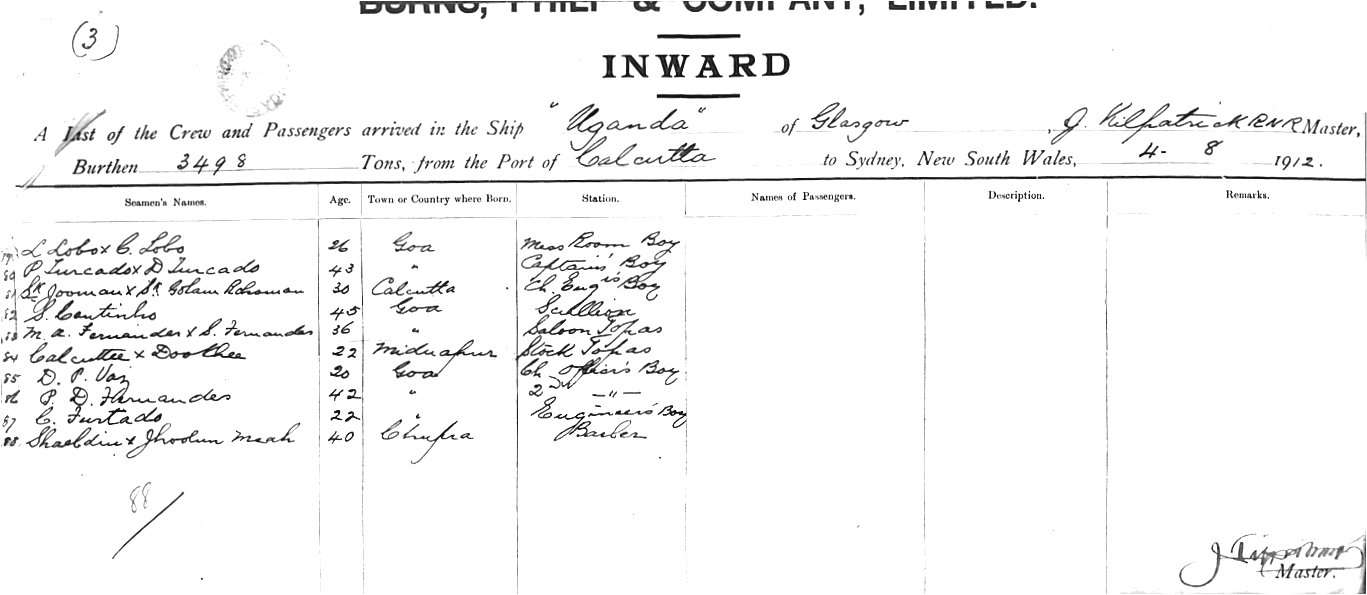 BURNS, PHILP & COMPANY, LIMITED.
(3)
INWARD
A List of the Crew and Passengers arrived in the Ship "Uganda" of Glasgow, J. Kilpatrick RNR Master,
Burthen 3498 Tons, from the Port of Calcutta to Sydney, New South Wales, 4-8 1912.
Seamen's Names. Age. Town or Country where Born. Station. Names of Passengers. Description. Remarks.
79 L Lobo x C. Lobo 26 Goa Mess Room Boy
80 P Turcado x D Turcado 43 " Captain's Boy
81 Sk Jooman x Sk Golam Rohoman 30 Calcutta Ch. Eng's Boy
82 S. Coutinho 45 Goa Scullion
83 M. A. Fernandes x S. Fernandes 36 " Saloon Topas
84 Calcuttee x Doolhee 22 Midnapur Stock Topas
85 D. P. Vaz 20 Goa Ch Officer's Boy
86 P. D. Fernandes 42 " 2nd —"—
87 C. Furtado 22 " Engineers' Boy
88 Meah 40 Chupra Barber
88/
J
Master.